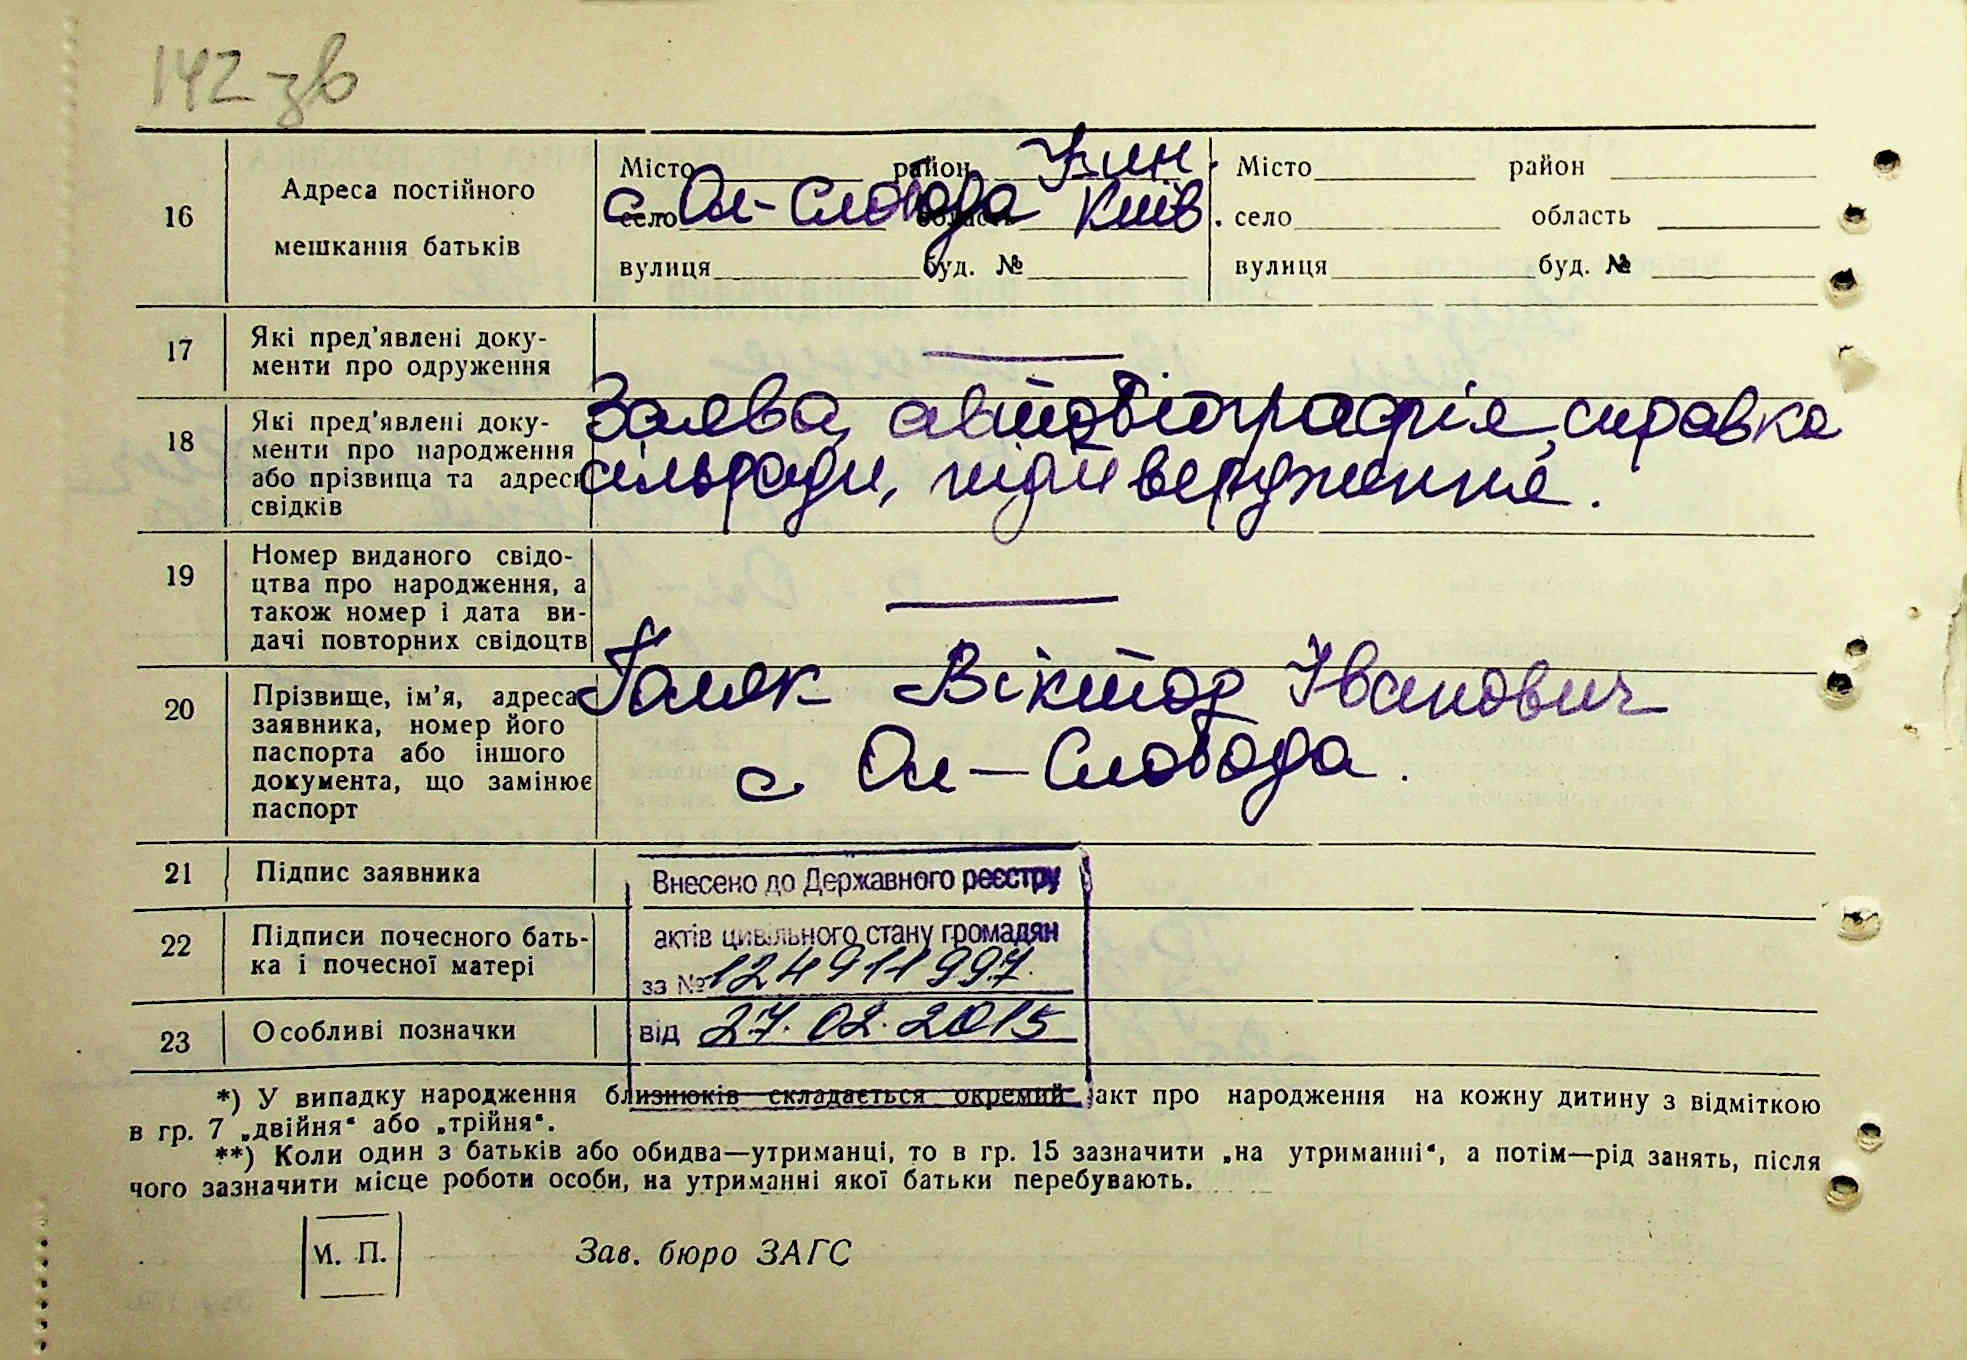 142 зв
16 Адреса постійного мешкання батьків
Місто район Узин.
с. Ол-Слобода Київ.
село область
вулиця буд. №
Місто район
село область
вулиця буд. №
17 Які пред'явлені доку-
менти про одруження
18 Які пред'явлені доку-
менти про народження
або прізвища та адреси
свідків
Заява, автобіографія, справка
сільради, підтвердження.
19 Номер виданого свідо-
цтва про народження, а
також номер і дата ви-
дачі повторних свідоцтв
20 Прізвище, ім'я, адреса
заявника, номер його
паспорта або іншого
документа, що замінює
паспорт
Галяк Віктор Іванович
с. Ол-Слобода.
21 Підпис заявника
22 Підписи почесного бать-
ка і почесної матері
23 Особливі позначки
Внесено до Державного реєстру
актів цивільного стану громадян
за № 124911997.
від 27.02.2015
*) У випадку народження близнюків складається окремий акт про народження на кожну дитину з відміткою
в гр. 7 „двійня" або „трійня".
**) Коли один з батьків або обидва—утриманці, то в гр. 15 зазначити „на утриманні", а потім—рід занять, після
чого зазначити місце роботи особи, на утриманні якої батьки перебувають.
М. П.
Зав. бюро ЗАГС